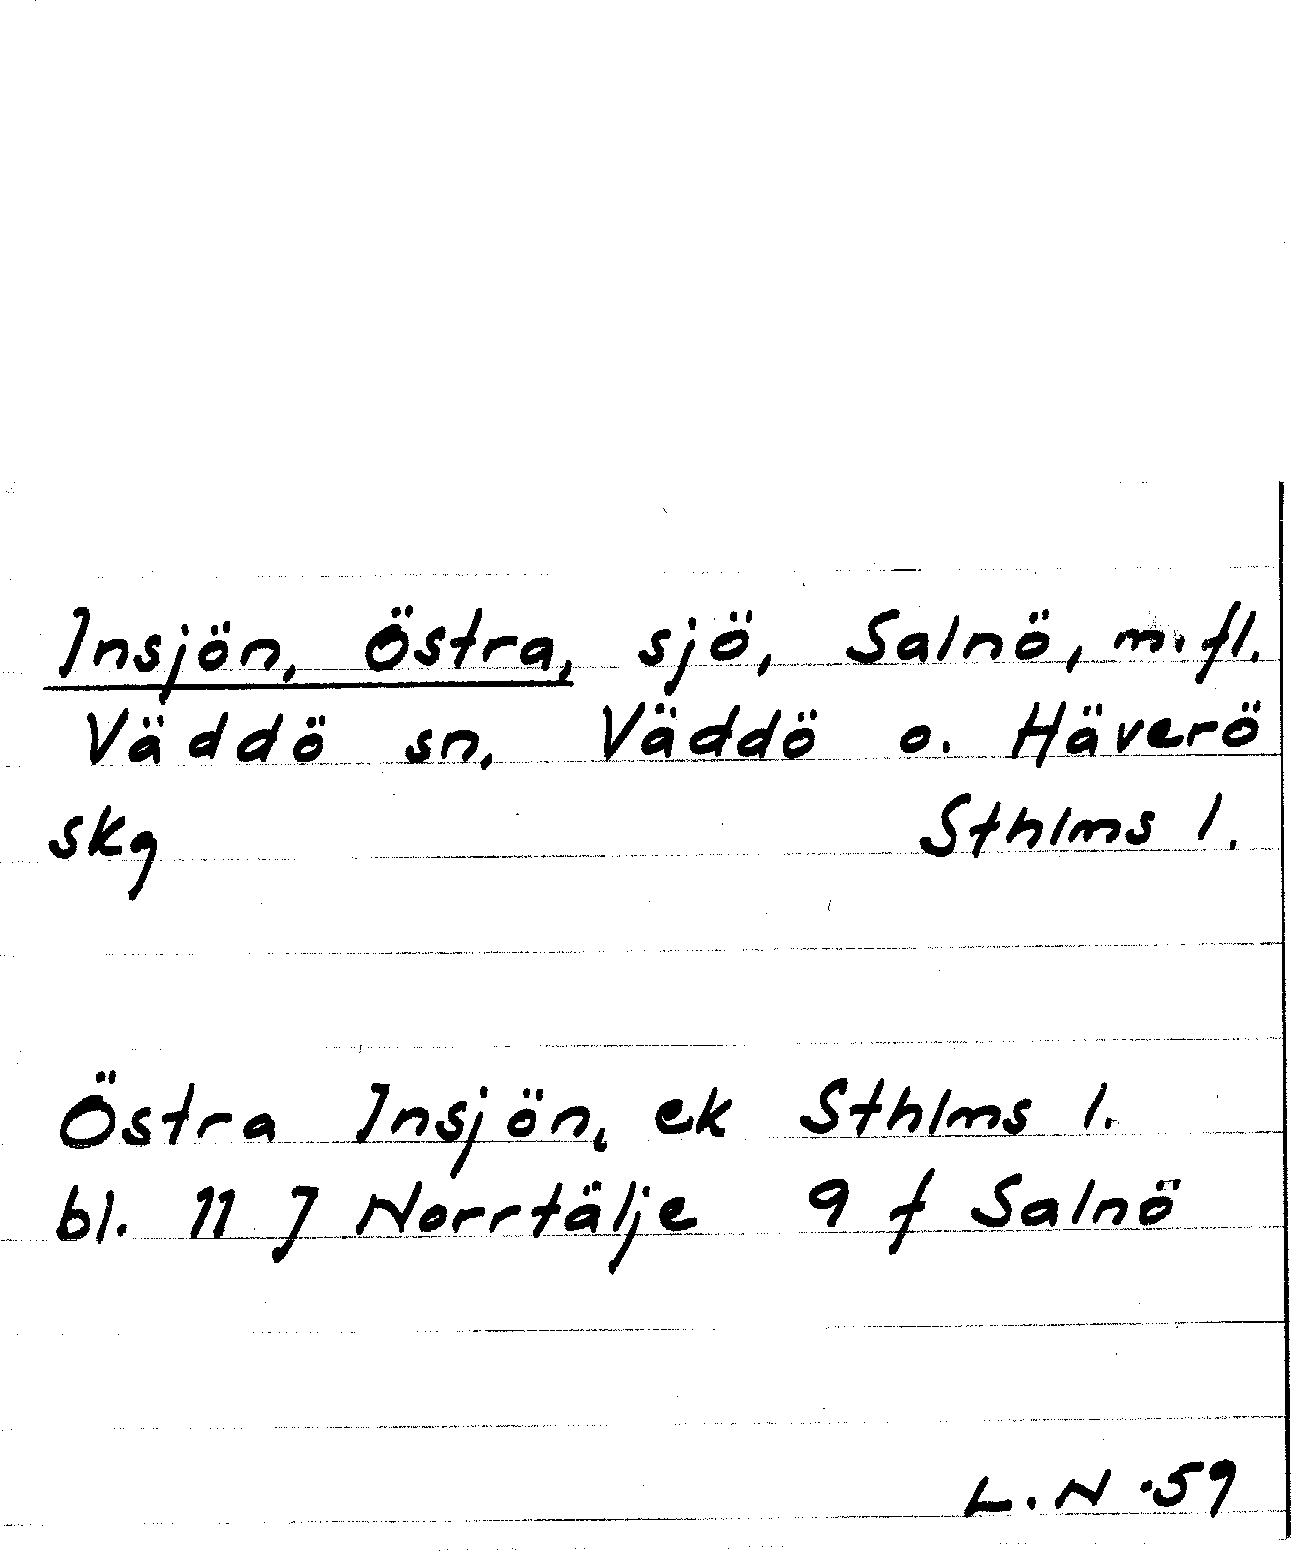 Insjön, Östra, sjö, Salnö, m.fl.
Väddö sn, Väddö o. Häverö
skg Sthlms l.
Östra Insjön, ek Sthlms l.
bl. 11 J Norrtälje 9 f Salnö
L.N -59